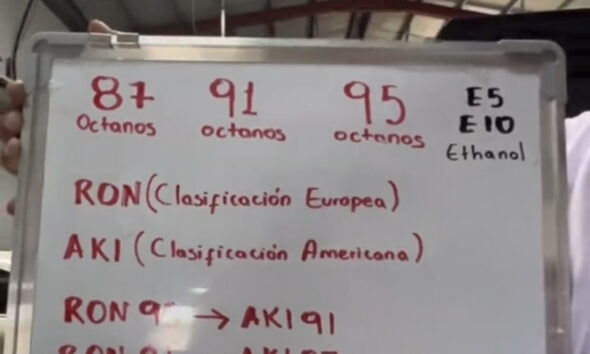 87 91 95 E5
Octanos octanos octanos E10
Ethanol
RON (Clasificación Europea)
AKI (Clasificación Americana)
RON → AKI 91